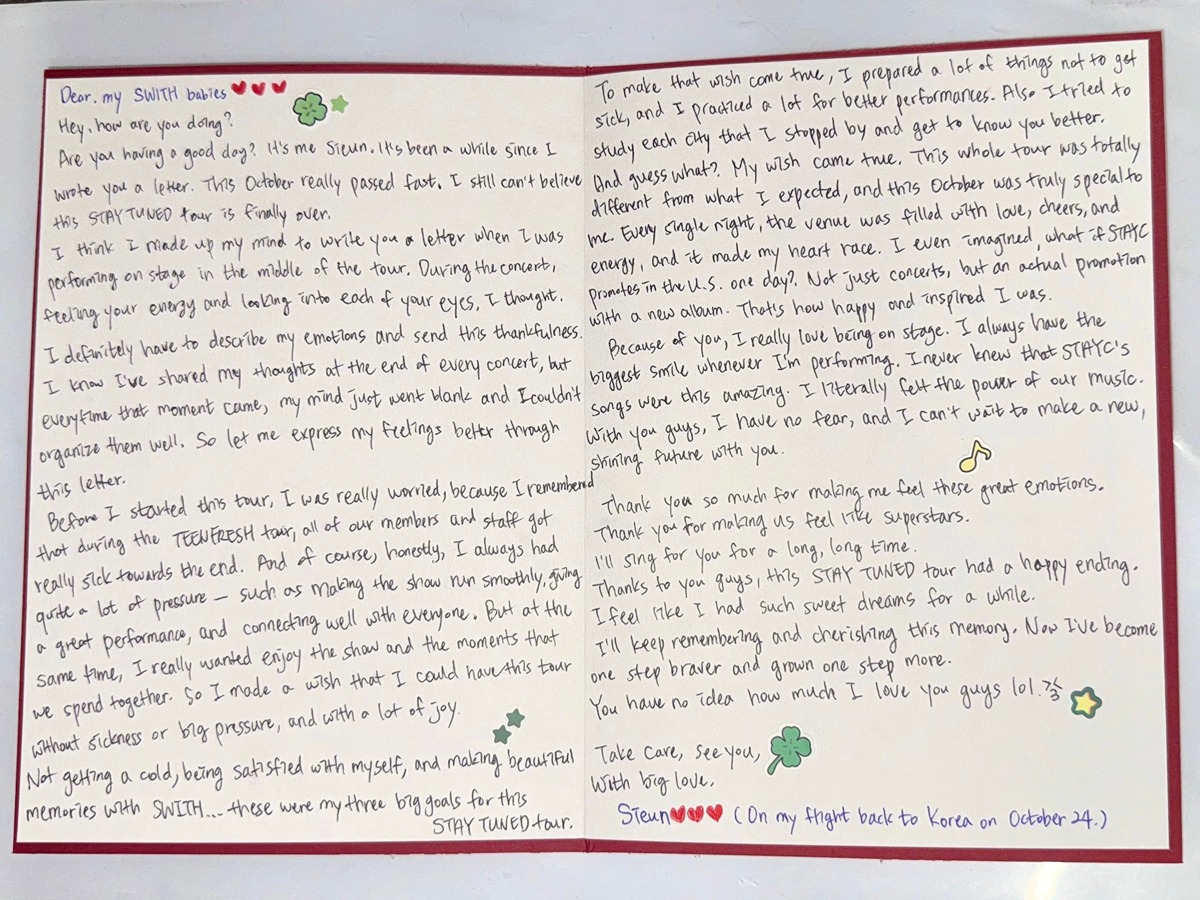 Dear. my SWITH babies ♥♥♥
Hey. how are you doing?
Are you having a good day? It's me Sieun. It's been a while since I
wrote you a letter. This October really passed fast. I still can't believe
this STAY TUNED tour is finally over.
I think I made up my mind to write you a letter when I was
performing on stage in the middle of the tour. During the concert,
feeling your energy and looking into each of your eyes, I thought.
I definitely have to describe my emotions and send this thankfulness.
I know I've shared my thoughts at the end of every concert, but
everytime that moment came, my mind just went blank and I couldn't
organize them well. So let me express my feelings better through
this letter.
Before I started this tour, I was really worried, because I remembered
that during the TEENFRESH tour, all of our members and staff got
really sick towards the end. And of course, honestly, I always had
quite a lot of pressure — such as making the show run smoothly, giving
a great performance, and connecting well with everyone. But at the
same time, I really wanted enjoy the show and the moments that
we spend together. So I made a wish that I could have this tour
without sickness or big pressure, and with a lot of joy.
Not getting a cold, being satisfied with myself, and making beautiful
memories with SWITH... these were my three big goals for this
STAY TUNED tour.
To make that wish come true, I prepared a lot of things not to get
sick, and I practiced a lot for better performances. Also I tried to
study each city that I stopped by and get to know you better.
And guess what? My wish came true. This whole tour was totally
different from what I expected, and this October was truly special to
me. Every single night, the venue was filled with love, cheers, and
energy, and it made my heart race. I even imagined, what if STAYC
promotes in the U.S. one day? Not just concerts, but an actual promotion
with a new album. That's how happy and inspired I was.
Because of you, I really love being on stage. I always have the
biggest smile whenever I'm performing. I never knew that STAYC's
songs were this amazing. I literally felt the power of our music.
With you guys, I have no fear, and I can't wait to make a new,
shining future with you.
Thank you so much for making me feel these great emotions.
Thank you for making us feel like superstars.
I'll sing for you for a long, long time.
Thanks to you guys, this STAY TUNED tour had a happy ending.
I feel like I had such sweet dreams for a while.
I'll keep remembering and cherishing this memory. Now I've become
one step braver and grown one step more.
You have no idea how much I love you guys lol.
Take care, see you,
With big love.
Sieun♥♥♥ (On my flight back to Korea on October 24.)